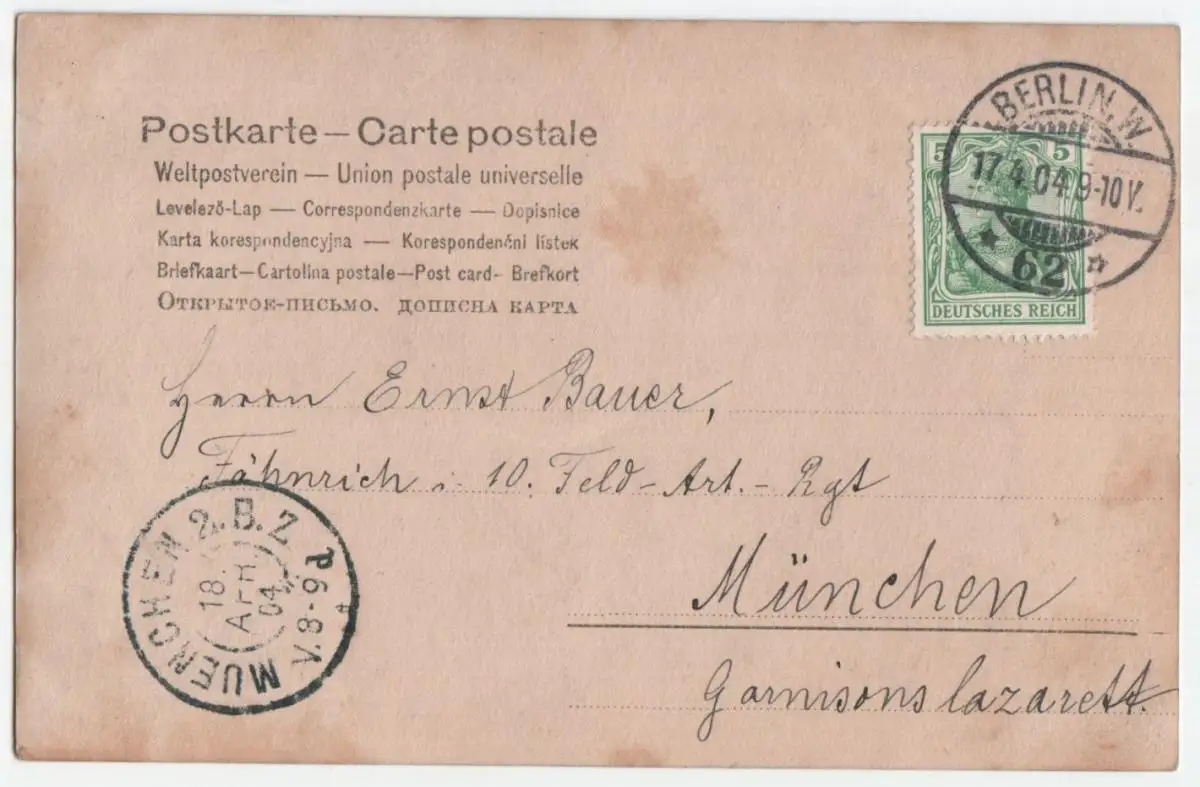 Postkarte — Carte postale
Weltpostverein — Union postale universelle
Levelező-Lap — Correspondenzkarte — Dopisnice
Karta korespondencyjna — Korespondenčni listek
Briefkaart — Cartolina postale — Post card - Brefkort
Открытое-письмо. дописна карта
BERLIN. W.
17.4.04. 9-10 V.
62
5 5
DEUTSCHES REICH
Herrn Ernst Bauer,
Fähnrich i. 10. Feld-Art.-Rgt
München
Garnisonslazarett.
MUENCHEN 2. B. Z.
18. APR. 04.
V. 8-9